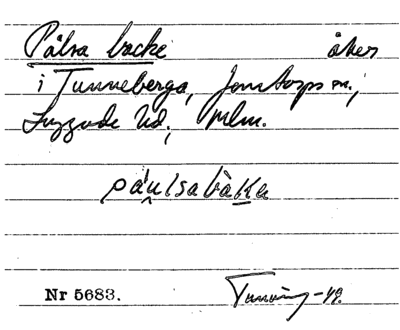 Pålsa backe åker
i Tunneberga, Jonstorps sn.,
Luggude hd, Mlm.
påulsabàka
Nr 5683.
-49.